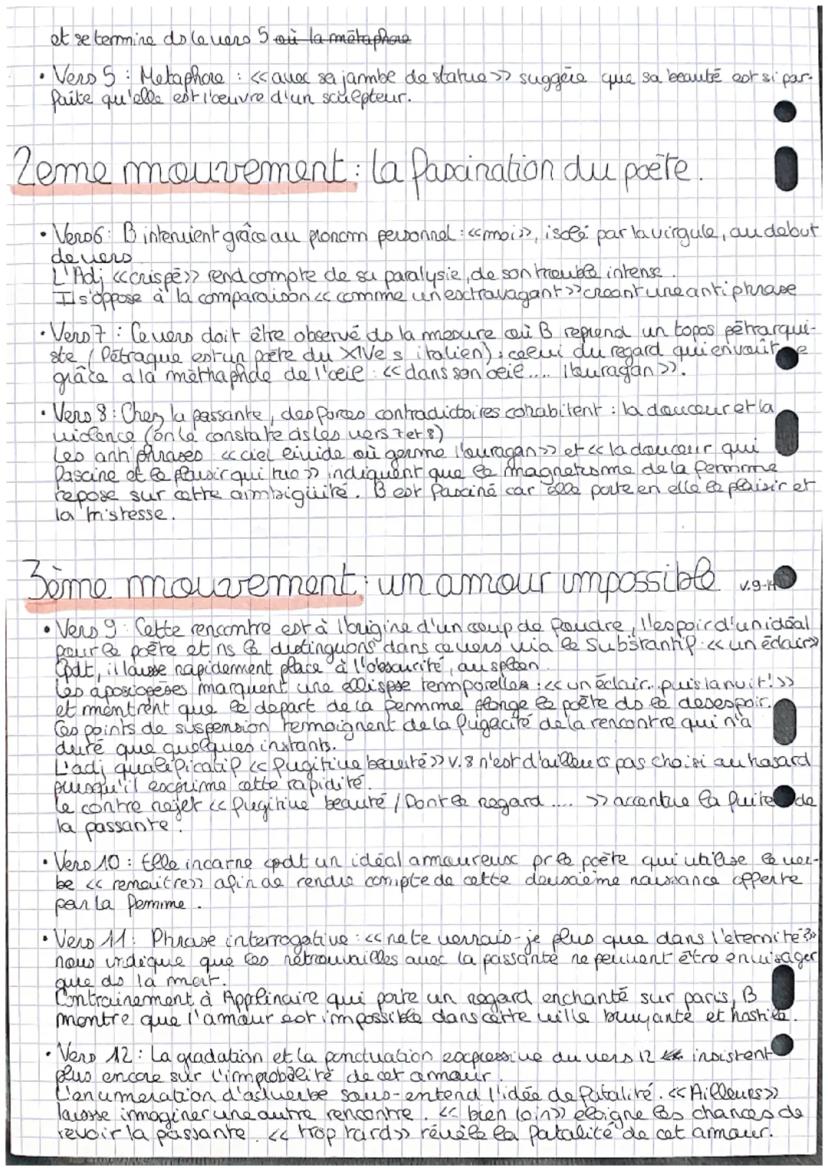 et se termine ds le vers 5 où la métaphore
• Vers 5 : Metaphore : << avec sa jambe de statue >> suggère que sa beauté est si par-
faite qu'elle est l'oeuvre d'un sculpteur.
2eme mouvement : la fascination du poète.
• Vers 6 : B intervient grâce au pronom personnel : << moi >>, isolé par la virgule, au debut
de vers
L'Adj << crispé >> rend compte de sa paralysie, de son trouble intense.
Il s'oppose à la comparaison << comme un extravagant >> creant une antiphrase
• Vers 7 : Ce vers doit être observé ds la mesure où B reprend un topos pétrarqui-
ste (Pétraque est un poète du XIVe s italien) : celui du regard qui envoûte
grâce a la méthaphde de l'oeie : << dans son oeie .... l'ouragan >>.
• Vers 8 : Chez la passante, des forces contradictoires cohabitent : la douceur et la
violence (on le constate ds les vers 7 et 8)
Les antiphrases << ciel livide où germe l'ouragan >> et << la douceur qui
fascine et le plaisir qui tue >> indiquent que le magnetisme de la femme
repose sur cette ambigüité. B est fasciné car elle porte en elle le plaisir et
la tristesse.
3ème mouvement : un amour impossible v.9-14
• Vers 9 : Cette rencontre est à l'origine d'un coup de foudre, l'espoir d'un idéal
pour le poète et ns le distinguons dans ce vers via le substantif << un éclair >>
Cpdt, il laisse rapidement place à l'obscurité, au spleen.
Les aposiopèses marquent une ellispse temporelles : << un éclair.. puis la nuit ! >>
et montrent que le depart de la femme plonge le poète ds le desespoir.
Ces points de suspension temoignent de la fugacité de la rencontre qui n'a
duré que quelques instants.
L'adj qualificatif << fugitive beauté >> v.8 n'est d'ailleurs pas choisi au hasard
puisqu'il exprime cette rapidité.
Le contre rejet << fugitive beauté / Dont le regard .... >> accentue la fuite de
la passante.
• Vers 10 : Elle incarne cpdt un idéal amoureux pr le poète qui utilise le ver-
be << renaître >> afin de rendre compte de cette deuxième naissance offerte
par la femme.
• Vers 11 : Phrase interrogative : << ne te verrais-je plus que dans l'eternité ? >>
nous indique que les retrouvailles avec la passante ne peuvent être envisager
que ds la mort.
Contrairement à Applinaire qui porte un regard enchanté sur paris, B
montre que l'amour est impossible dans cette ville bruyante et hostile.
• Vers 12 : La gradation et la ponctuation expressive du vers 12 insistent
plus encore sur l'improbalité de cet amour.
L'enumeration d'adverbe sous-entend l'idée de fatalité. << Ailleurs >>
laisse inmaginer une autre rencontre. << bien loin >> eloigne les chances de
revoir la passante. << trop tard >> révèle la fatalité de cet amour.